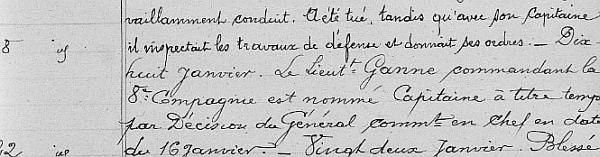 vaillamment conduit. A été tué, tandis qu'avec son Capitaine
il inspectait les travaux de défense et donnait ses ordres. _ Dix
8
huit Janvier. Le Lieutt Ganne commandant la
8e Compagnie est nommé Capitaine à titre temp
par Décision du Général commt en Chef en date
du 16 Janvier. _ Vingt deux Janvier. Blessé